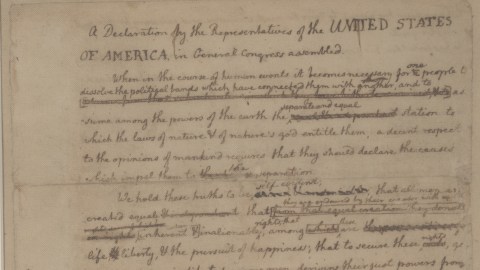 A Declaration by the Representatives of the UNITED STATES
OF AMERICA, in General Congress assembled.
When in the course of human events it becomes necessary for one people to
dissolve the political bands which have connected them with another, and to
as-
sume among the powers of the earth the separate and equal station to
which the laws of nature & of nature's god entitle them, a decent respect
to the opinions of mankind requires that they should declare the causes
which impel them to the separation.
We hold these truths to be self-evident, that all men are
created equal that they are endowed by their creator with
rights; that among are
life, liberty, & the pursuit of happiness; that to secure these rights, go-
deriving their just powers from